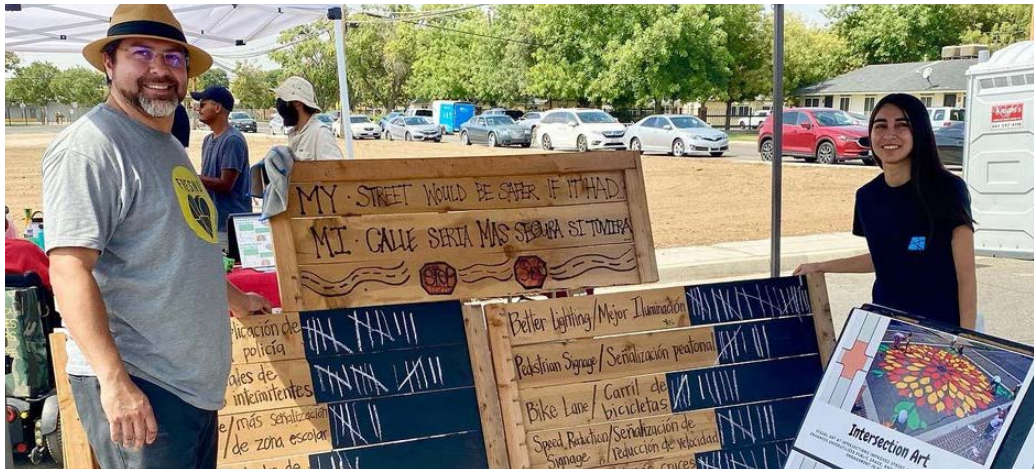 MY STREET WOULD BE SAFER IF IT HAD
MI CALLE SERIA MAS SEGURA SI TUVIERA
STOP
FRESNO
Knight's
plicación de
policía
ales de
intermitentes
e/más señalización
/de zona escolar
Better Lighting/Mejor Iluminación
Pedstrian Signage/Señalización peatonal
Bike Lane/Carril de
bicicletas
Speed Reduction/Señalización de
Signage reducción de velocidad
cruces
Intersection Art